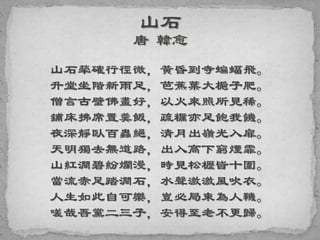 山石
唐 韓愈
山石犖確行徑微，黃昏到寺蝙蝠飛。
升堂坐階新雨足，芭蕉葉大梔子肥。
僧言古壁佛畫好，以火來照所見稀。
鋪床拂席置羹飯，疏糲亦足飽我饑。
夜深靜臥百蟲絕，清月出嶺光入扉。
天明獨去無道路，出入高下窮煙霏。
山紅澗碧紛爛漫，時見松櫪皆十圍。
當流赤足踏澗石，水聲激激風吹衣。
人生如此自可樂，豈必局束為人鞿。
嗟哉吾黨二三子，安得至老不更歸。